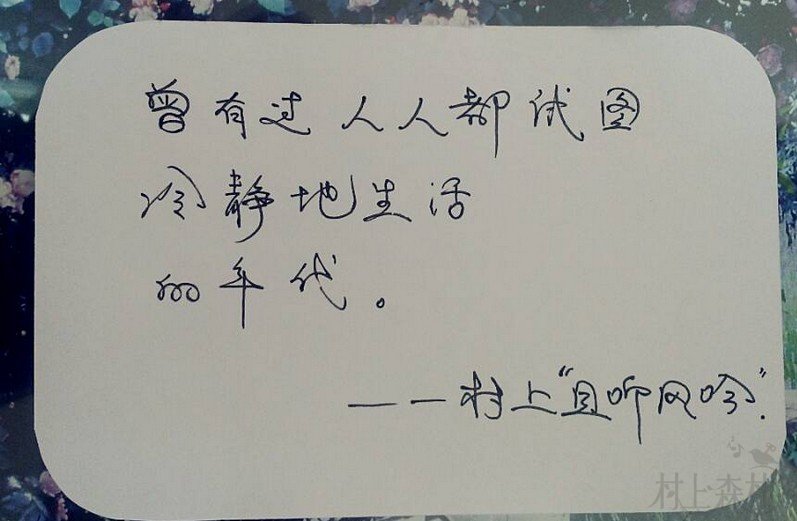 曾有过人人都试图
冷静地生活
的年代。
——村上“且听风吟”.
村上森林